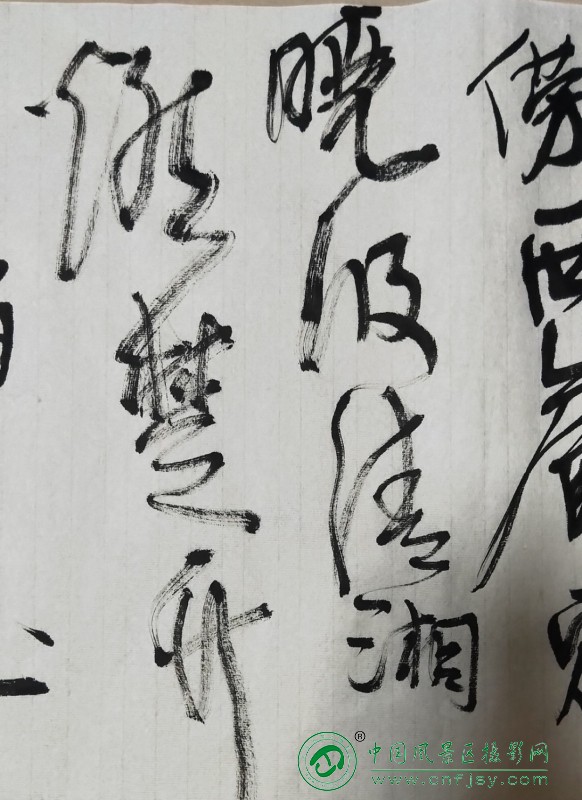 傍西岩宿
晓汲清湘
燃楚竹
®
中国风景区摄影网
www.cnfjsy.com